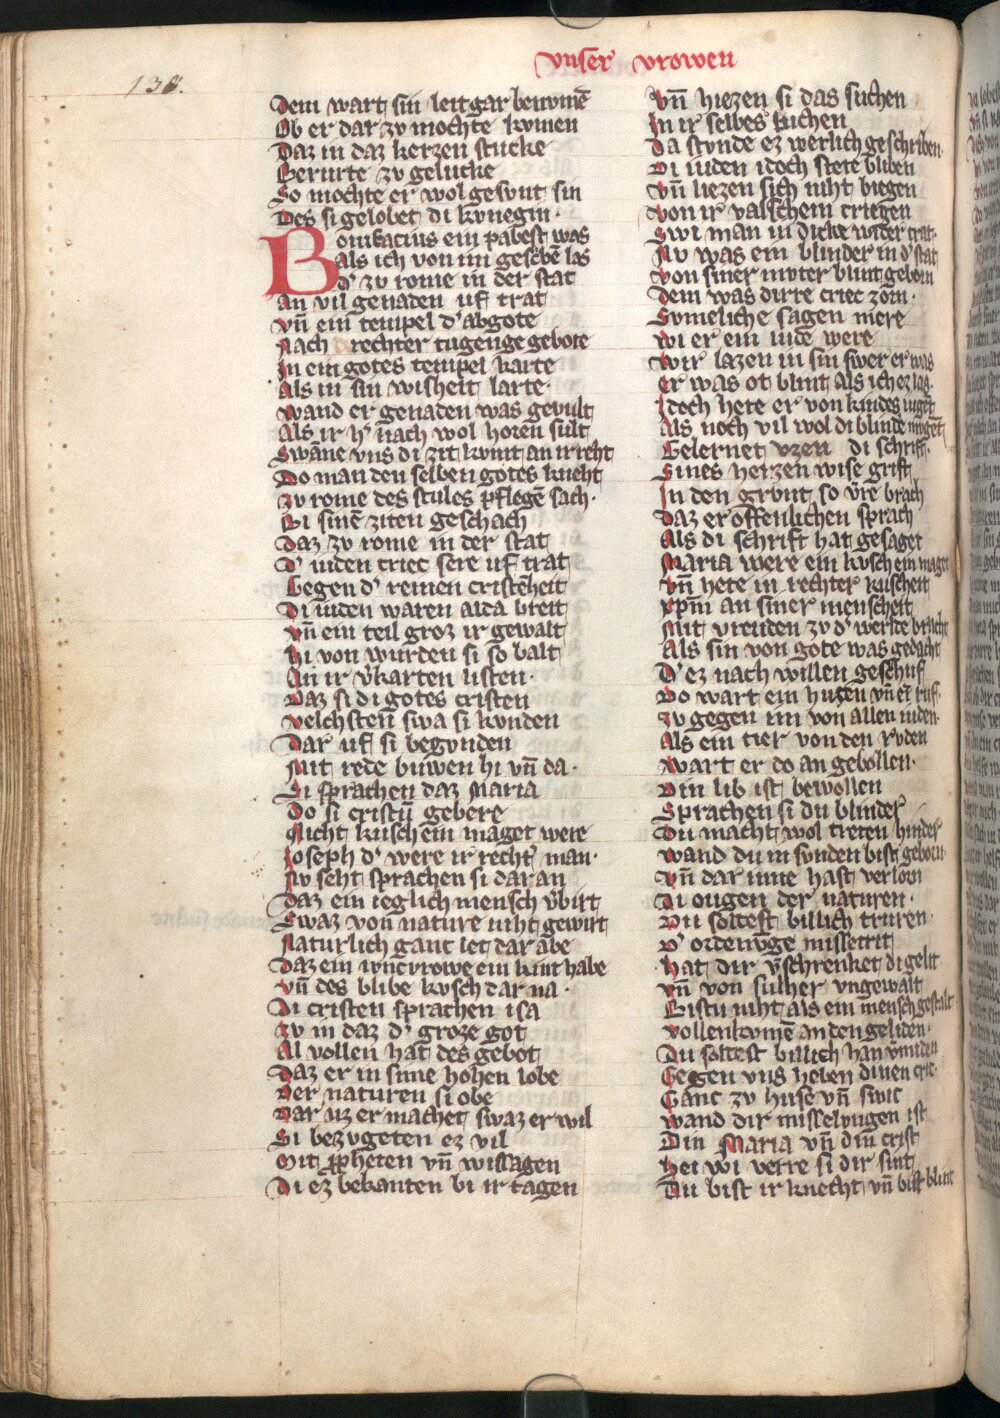 vnser vrowen
138.
Dem wart sin leit gar benvmē
Ob er dar zv mochte kvmen
Daz in daz kerzen stucke
Berurte zv gelucke
So mochte er wol gesvnt sin
Des si gelobet di kvnegin.
Bonifacius ein pabest was
Als ich von im geschͤbē las
D' zv rome in der stat
An vil genaden uf trat
Vn̄ ein tempel d' abgote
Nach rechter tugende gebote
In ein gotes tempel karte
Als in sin wisheit larte.
Wand er genaden was gevult
Als ir h' nach wol horen sult
Swāne vns di zit kvmt an ir reht
Do man den selben gotes kneht
Zv rome des stules pflegē sach.
Bi sinē ziten geschach
Daz zv rome in der stat
D' iuden criec sere uf trat
Gegen d' reinen cristēheit
Di iuden waren alda breit
Vn̄ ein teil groz ir gewalt
Hi von wurden si so balt
An ir v̄karten listen.
Daz si di gotes cristen
Velchsten swa si kvnden
Dar uf si begvnden
Mit rede buwen hi vn̄ da.
Si sprachen daz Maria
Do si cristū gebere
Nicht kusch ein maget were
Joseph d' were ir recht' man.
Nv seht sprachen si dar an
Daz ein ieglich mensch v̄birt
Swaz von nature niht gewirt
Naturlich ganc let dar abe
Daz ein ivncvrowe ein kint habe
Vn̄ des blibe kvsch dar na.
Di cristen sprachen isa
Zv in daz d' groze got
Al vollen hat des gebot
Daz er in sime hohen lobe
Der naturen si obe
Dar uz er machet swaz er wil
Si bezvgeten ez vil
Mit ꝓpheten vn̄ wissagen
Di ez bekanten bi ir tagen
Vn̄ hiezen si das suchen
In ir selbes buchen
Da stvnde ez werlich geschriben.
Di iuden idoch stete bliben
Vn̄ liezen sich niht biegen
Von ir valschem criegen
Swi man in dicke wider trat.
Nv was ein blinder in d' stat
Von siner mvter blint geborn
Dem was dirre criec zorn.
Svmeliche sagen mere
Wi er ein iude were
Wir lazen in sin swer er was
Er was ot blint als ich ez las.
Idoch hete er von kindes iugēt
Als noch vil wol di blinde mugēt
Gelernet vzen di schrift.
Sines herzen wise grift
In den grvnt so v̄re brach
Daz er offenlichen sprach
Als di schrift hat gesaget
Maria were ein kvsch ein maget
Vn̄ hete in rechter kuscheit
Xpm̄ an siner menscheit
Mit vreuden zv d' werlde bracht
Als sin von gote was gedacht
D' ez nach willen geschuf
Do wart ein huzen vn̄ ei ruf.
Zv gegen im von allen iuden.
Als ein tier von den rvden
Wart er do an gebollen.
Din lib ist bewollen
Sprachen si du blinder
Du macht wol treten hinder
Wand du in svnden bist geborn
Vn̄ dar inne hast verlorn
Di ougen der naturen.
Du soltest billich truren.
D' ordenv̄ge missetrit
Hat dir v̄schrenket di gelit
Vn̄ von sulher vngewalt
Bistu niht als ein mensch gestalt
Vollenkvmē an den geliden.
Du soltest billich han v̄miden
Gegen vns heben dinen cric.
Ganc zv huse vn̄ swic
Wand dir misselvngen ist
Din Maria vn̄ din crist
Hei wi verre si dir sint
Du bist ir knecht vn̄ bist blint